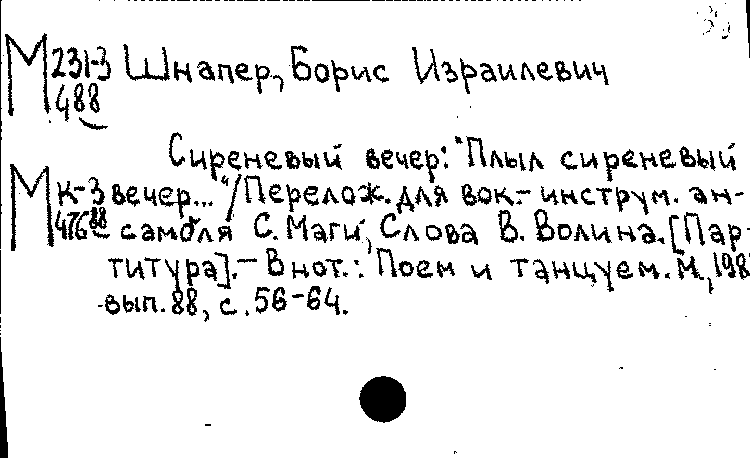 М 231-3 Шнапер, Борис Израилевич
488
Сиреневый вечер: "Плыл сиреневый
М к-3 вечер..."/Перелож. для вок.- инструм. ан-
476 88 самбля С. Маги, Слова В. Волина. [Пар-
титура].- В нот.: Поем и танцуем. М., 198
вып. 88, с. 56-64.